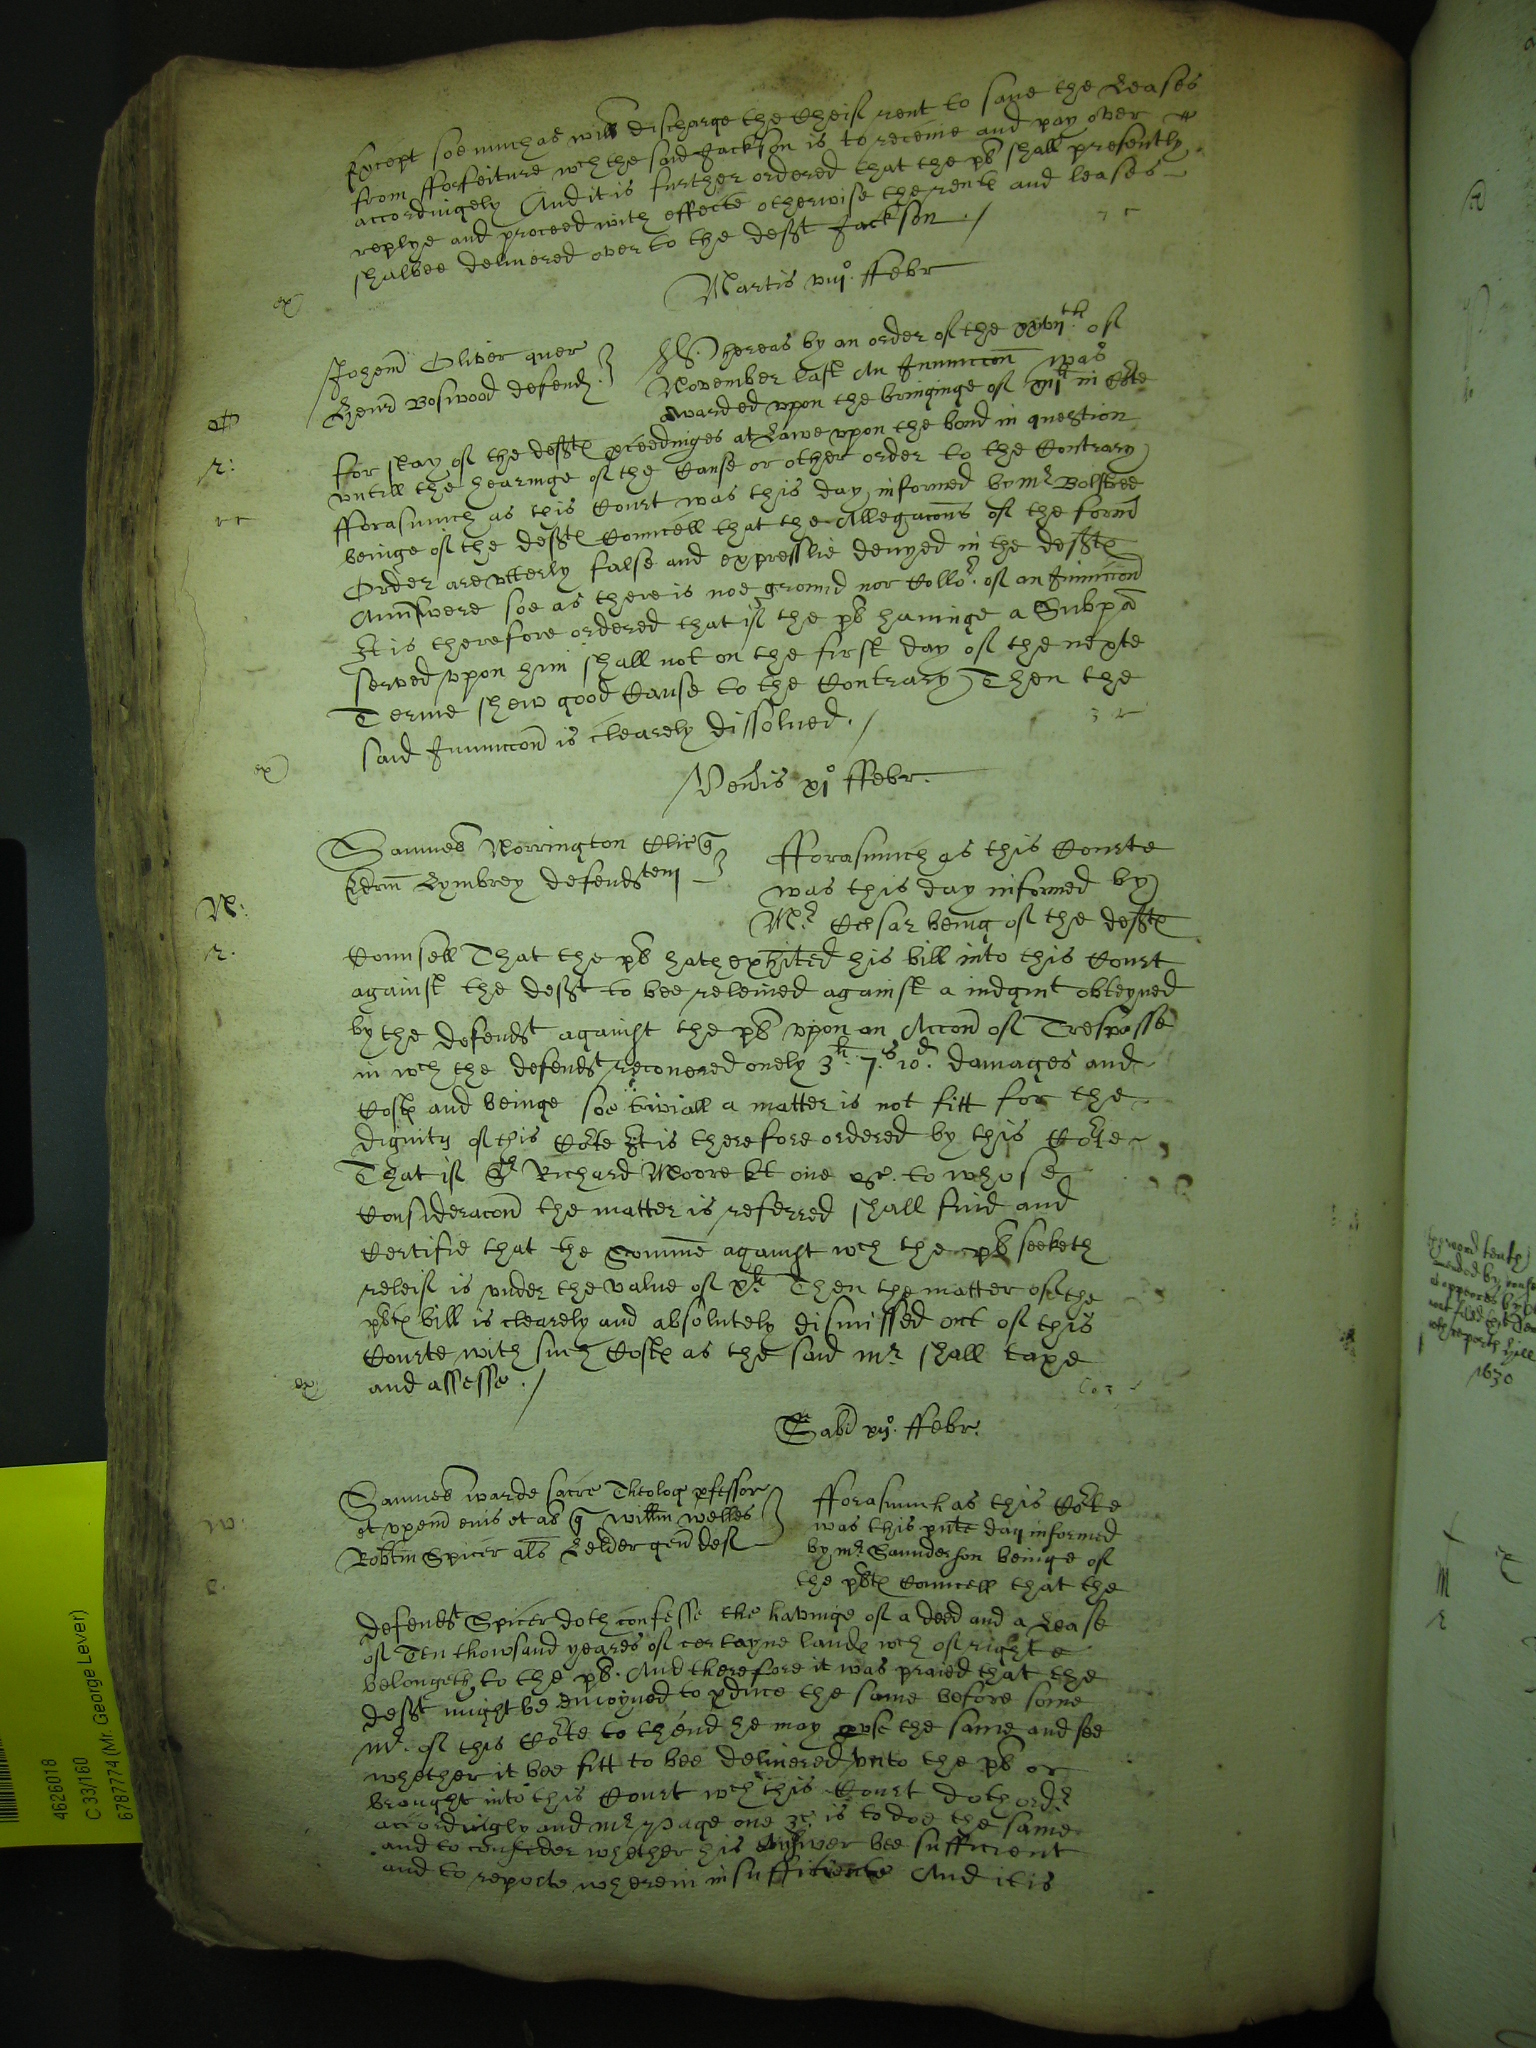 Except soe much as will discharge the cheif rent to save the Leases
from fforfeiture wch the said Jackson is to receive and pay over
accordingely And it is further ordered that the plt shall presently
replye and proceed with effecte otherwise the rente and leases
shalbee delivered over to the defft Jackson ./
ex
Martis viijo. ffebr
Johem Oliver quer
Henr Boswood defend.
Whereas by an order of the xxvijth of
November last An Iniunccon was
awarded vpon the bringinge of xijli in Corte
r:
for stay of the deffts pceedinges at Lawe vpon the bond in question
vntill the hearinge of the Cause or other order to the Contrary
fforasmuch as this Court was this day informed by Mr Bolstred
beinge of the deffts Councell that the Allegacons of the formr
Order are vtterly false and expresslie denyed in the deffts
Aunswere soe as there is noe ground nor Collor. of an Iniunccon
It is therefore ordered that if the plt havinge a Subpa
served vpon him shall not on the first day of the nexte
Terme shew good Cause to the Contrary Then the
said Iniunccon is clearely dissolued ./
ex
Venis xjo ffebr.
Samuel Norrington Clic q
Edrm Lymbrey defendtem
fforasmuch as this Courte
was this day informed by
Mr. being of the deffts
N:
r.
Counsell That the plt hath exhited his bill into this Court
against the defft to bee releived against a iudgmt obteyned
by the defendt against the plt vpon an Accon of Trespasse
in wch the defendt recovered onely 3li. 7s. 10d. damages and
Costs and beinge soe triviall a matter is not fitt for the
dignity of this Corte It is therefore ordered by this Corte
That if Sr Richard Moore kt one &c. to whose
Consideracon the matter is referred shall find and
Certifie that the Somme against wch the plt seeketh
releif is vnder the value of xli Then the matter of the
plts bill is clearely and absolutely dismissed out of this
Courte with such Costs as the said Mr. shall taxe
and assesse ./
ex
Sabi xijo. ffebr.
Samuel warde sacre Theolog pfessor
et vxem eius et al q willm welles
Robtm Spicer als Lelder gen def
fforasmuch as this Corte
was this pnte day informed
by Mr. Saunderson beinge of
the plts Councell that the
w.
defendt Spicer doth confesse the havinge of a deed and a Lease
of Ten thowsand yeares of certayne lands wch of righte
belongeth to the plt. And therefore it was praied that the
defft might be enioyned to pduce the same before some
Mr. of this Corte to thend he may pvse the same and see
whether it bee fitt to bee delivered vnto the plt or
brought into this Court wch this Court doth ordr
accordingly and Mr Page one &c. is to doe the same
and to consider whether his answer bee sufficient
and to reporte wherein insufficiente And it is
4626018
C 33/160
6787774 (Mr. George Lever)
1630